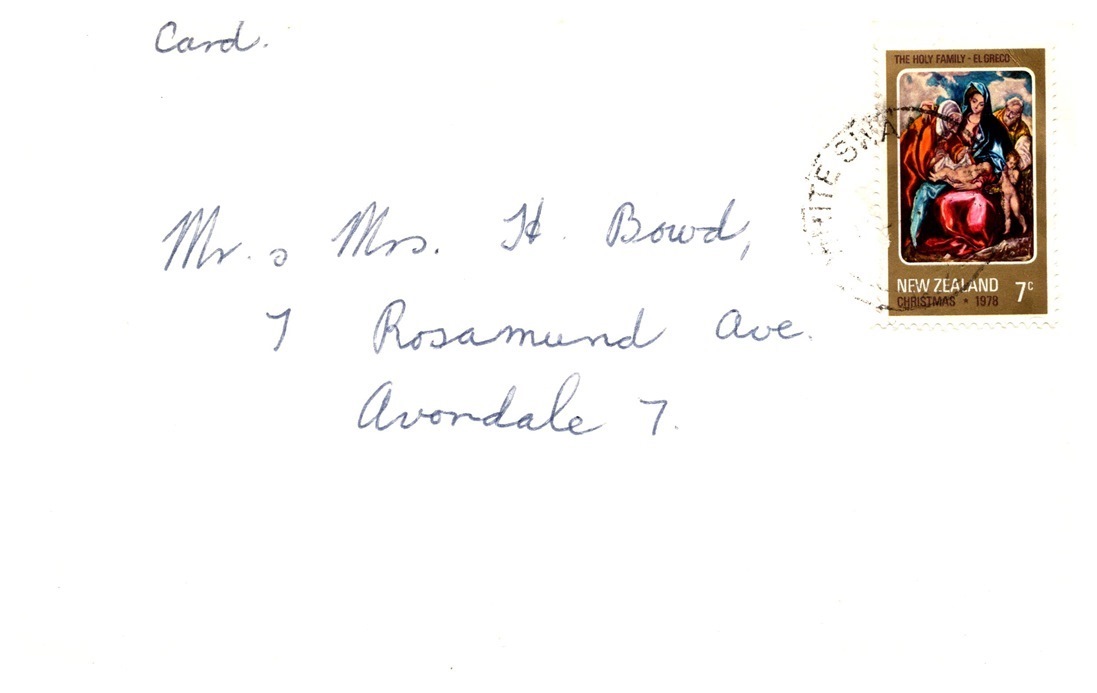 Card.
THE HOLY FAMILY - EL GRECO
Mr. & Mrs. H. Bowd,
7 Rosamund Ave.
Avondale 7.
NEW ZEALAND 7c
CHRISTMAS * 1978